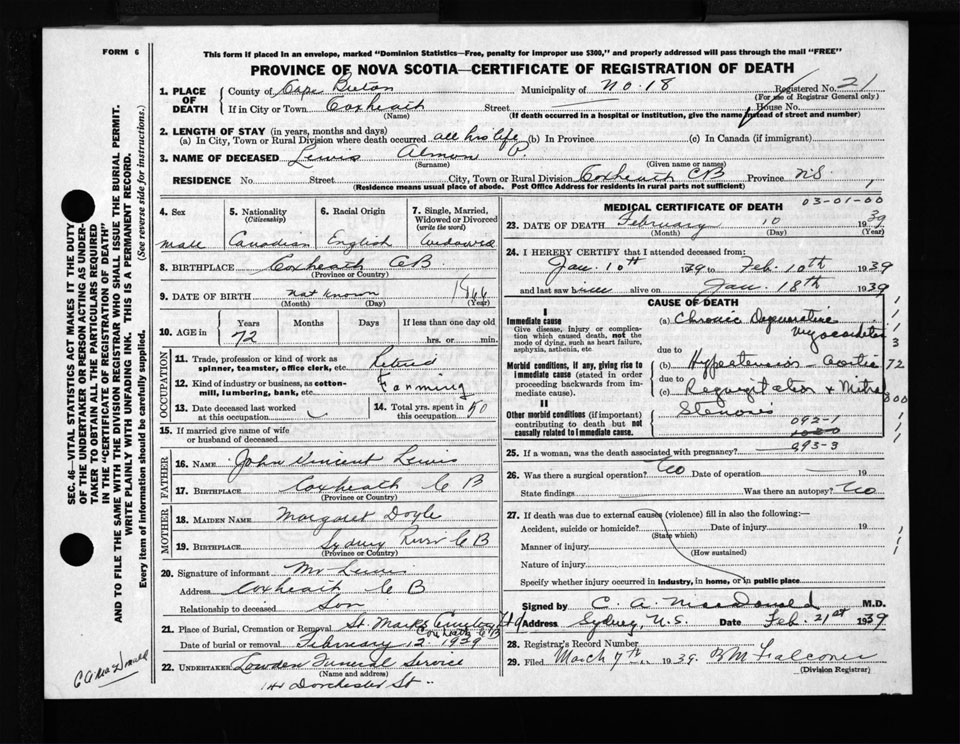 FORM 6
This form if placed in an envelope, marked "Dominion Statistics—Free, penalty for improper use $300," and properly addressed will pass through the mail "FREE"
PROVINCE OF NOVA SCOTIA—CERTIFICATE OF REGISTRATION OF DEATH
1. PLACE OF DEATH
County of Cape Breton Municipality of No. 18 Registered No. 21
(For use of Registrar General only)
If in City or Town Coxheath Street House No.
(Name) (If death occurred in a hospital or institution, give the name instead of street and number)
2. LENGTH OF STAY (in years, months and days)
(a) In City, Town or Rural Division where death occurred all his life (b) In Province (c) In Canada (if immigrant)
3. NAME OF DECEASED Lewis Almon P.
(Surname) (Given name or names)
RESIDENCE No. Street City, Town or Rural Division Coxheath CB Province N.S.
(Residence means usual place of abode. Post Office Address for residents in rural parts not sufficient)
SEC. 46—VITAL STATISTICS ACT MAKES IT THE DUTY
OF THE UNDERTAKER OR PERSON ACTING AS UNDERTAKER TO OBTAIN ALL THE PARTICULARS REQUIRED
IN THE "CERTIFICATE OF REGISTRATION OF DEATH"
AND TO FILE THE SAME WITH THE DIVISION REGISTRAR WHO SHALL ISSUE THE BURIAL PERMIT.
WRITE PLAINLY WITH UNFADING INK. THIS IS A PERMANENT RECORD.
Every item of information should be carefully supplied. (See reverse side for instructions.)
4. Sex
male
5. Nationality
(Citizenship)
Canadian
6. Racial Origin
English
7. Single, Married, Widowed or Divorced
(write the word)
Widowed
8. BIRTHPLACE Coxheath CB
(Province or Country)
9. DATE OF BIRTH not known 1866
(Month) (Day) (Year)
10. AGE in
Years Months Days If less than one day old
72 hrs. or min.
OCCUPATION
11. Trade, profession or kind of work as spinner, teamster, office clerk, etc. Retired
12. Kind of industry or business, as cotton-mill, lumbering, bank, etc. Farming
13. Date deceased last worked at this occupation
14. Total yrs. spent in this occupation 50
15. If married give name of wife or husband of deceased
FATHER
16. NAME John Vincent Lewis
17. BIRTHPLACE Coxheath C B
(Province or Country)
MOTHER
18. MAIDEN NAME Margaret Doyle
19. BIRTHPLACE Sydney River C B
(Province or Country)
20. Signature of informant Mr Lewis
Address Coxheath C B
Relationship to deceased Son
21. Place of Burial, Cremation or Removal St. Marks Cemetery
Coxheath C B
Date of burial or removal February 12 1939
22. UNDERTAKER Lowden Funeral Service
(Name and address)
Dorchester St.
MEDICAL CERTIFICATE OF DEATH
03-01-00
23. DATE OF DEATH February 10 1939
(Month) (Day) (Year)
24. I HEREBY CERTIFY that I attended deceased from:
Jan. 10th 1939 to Feb. 10th 1939
and last saw him alive on Jan. 18th 1939
CAUSE OF DEATH
I
Immediate cause
Give disease, injury or complication which caused death, not the mode of dying, such as heart failure, asphyxia, asthenia, etc
(a) Chronic Degenerative Myocarditis
due to
Morbid conditions, if any, giving rise to immediate cause (stated in order proceeding backwards from immediate cause).
(b) Hypertension - Aortic
due to
(c) Regurgitation & Mitral
Stenosis
II
Other morbid conditions (if important) contributing to death but not causally related to immediate cause.
093-3
25. If a woman, was the death associated with pregnancy?
26. Was there a surgical operation? No Date of operation 19
State findings Was there an autopsy? No
27. If death was due to external causes (violence) fill in also the following:—
Accident, suicide or homicide? Date of injury 19
(State which)
Manner of injury
(How sustained)
Nature of injury
Specify whether injury occurred in industry, in home, or in public place
Signed by C. A. MacDonald M.D.
Address Sydney, N.S. Date Feb. 21st 1939
28. Registrar's Record Number
29. Filed March 7th 1939. Falconer
(Division Registrar)